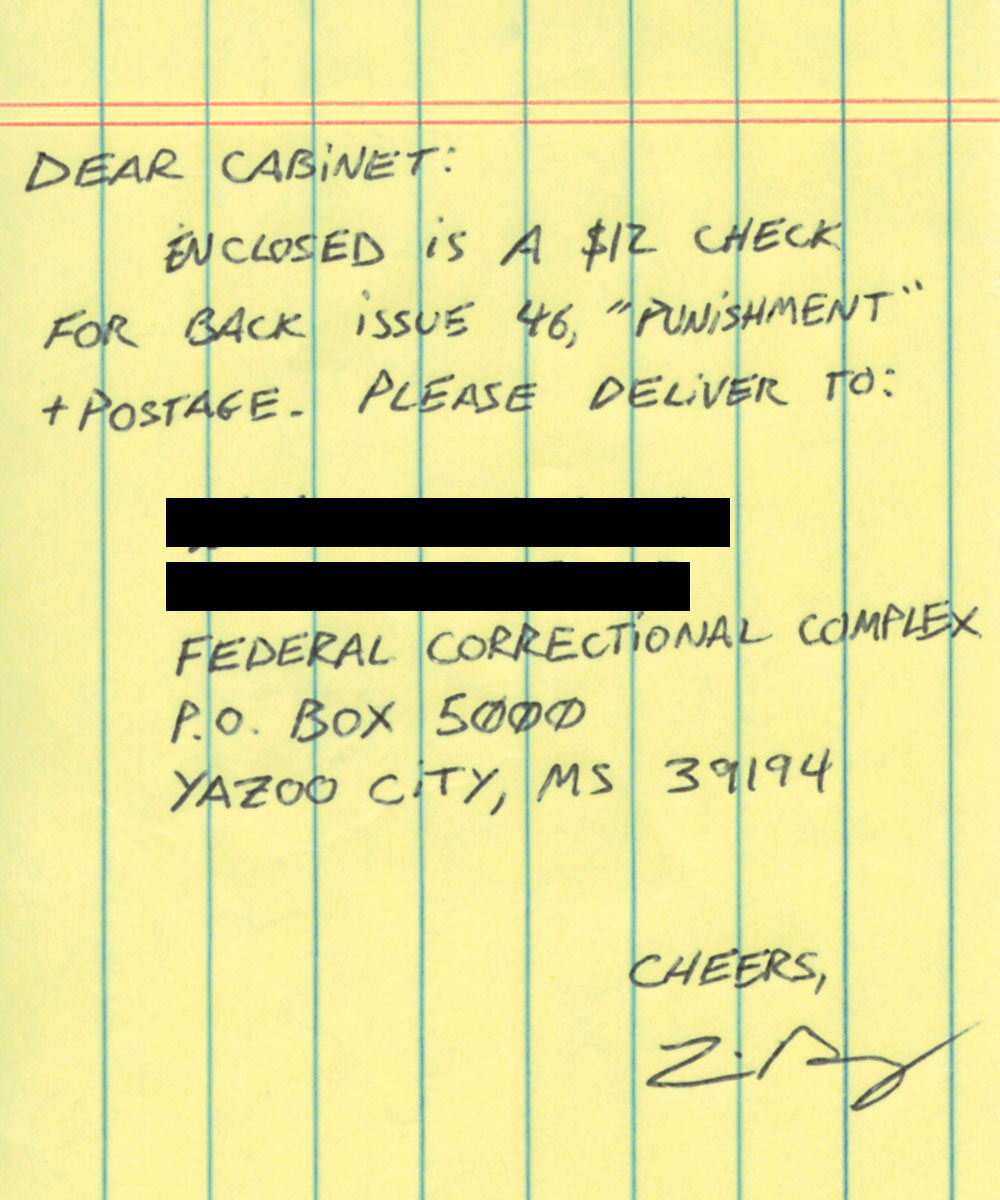 DEAR CABiNET:
ENCLOSED iS A $12 CHECK
FOR BACK iSSUE 46, "PUNiSHMENT"
+ POSTAGE. PLEASE DELiVER TO:
FEDERAL CORRECTiONAL COMPLEX
P.O. BOX 5000
YAZOO CiTY, MS 39194
CHEERS,